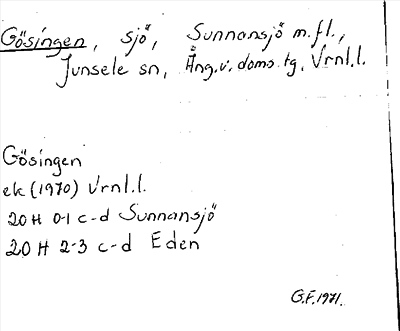 Gösingen, sjö, Sunnansjö m.fl.,
Junsele sn, Ång.v. doms.tg, Vrnl.l.
Gösingen
ek (1970) Vrnl.l.
20 H 0-1 c-d Sunnansjö
20 H 2-3 c-d Eden
G.F. 1971.